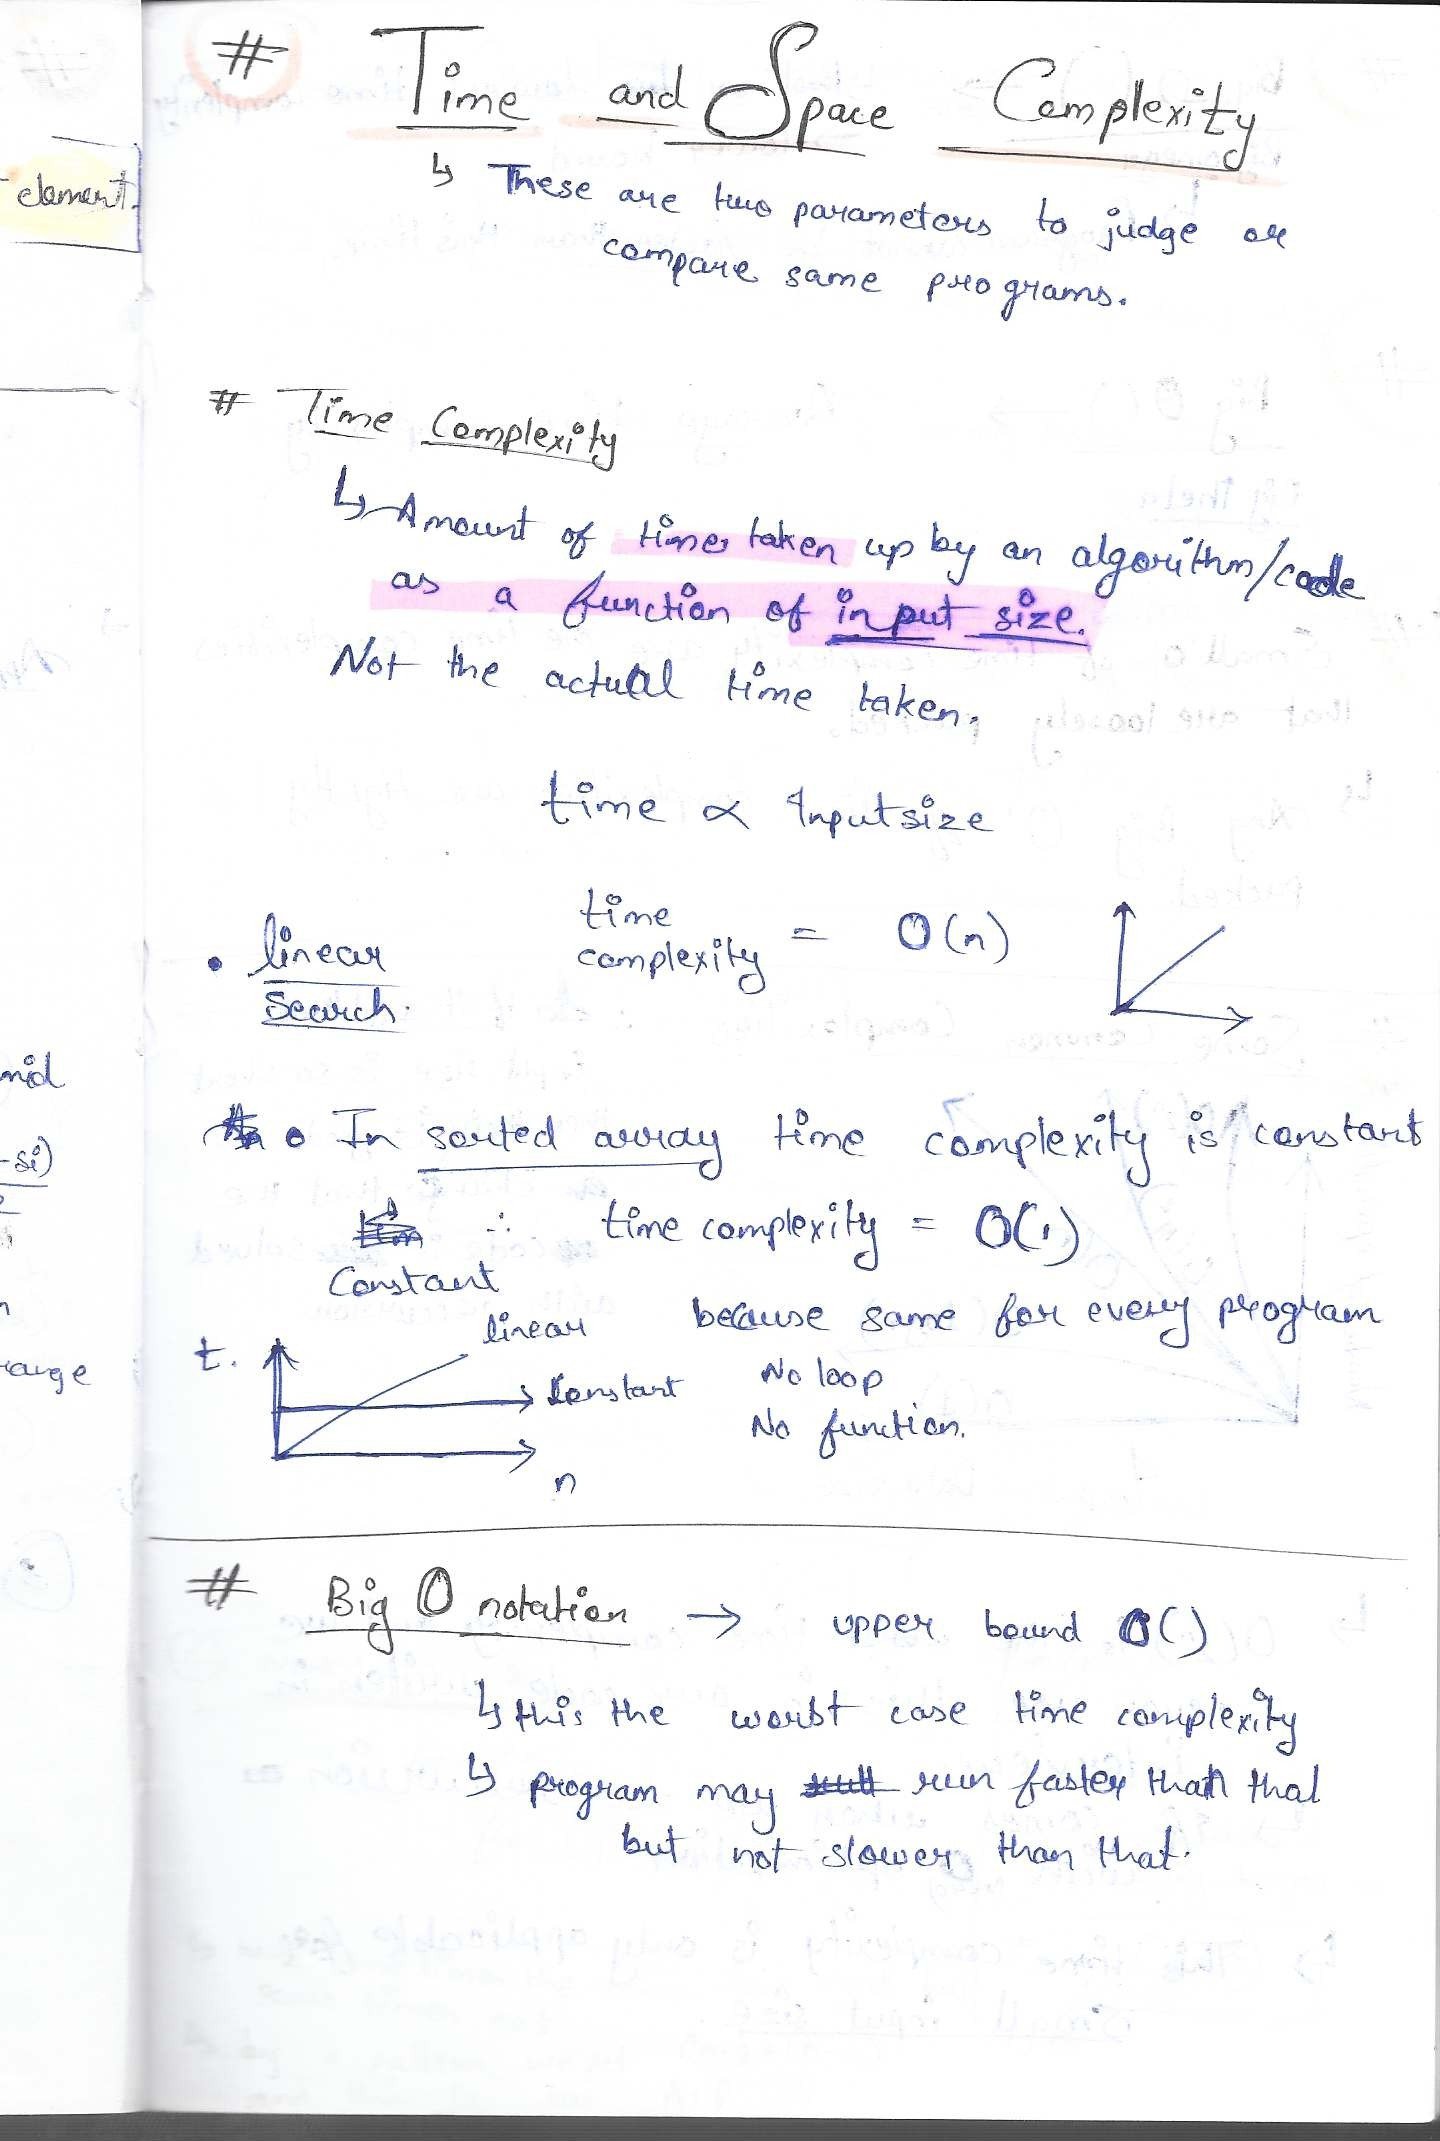 element.
mid
-si)
2
range
# Time and Space Complexity
↳ These are two parameters to judge or
compare same programs.
# Time Complexity
↳ Amount of time taken up by an algorithm/code
as a function of input size.
Not the actual time taken.
time ∝ Inputsize
• linear
Search.
time
complexity = O(n)
• In sorted array time complexity is constant
∴ time complexity = O(1)
Constant
because same for every program
No loop
No function.
t.
linear
Constant
n
# Big O notation → upper bound O()
↳ this the worst case time complexity
↳ program may run faster than that
but not slower than that.